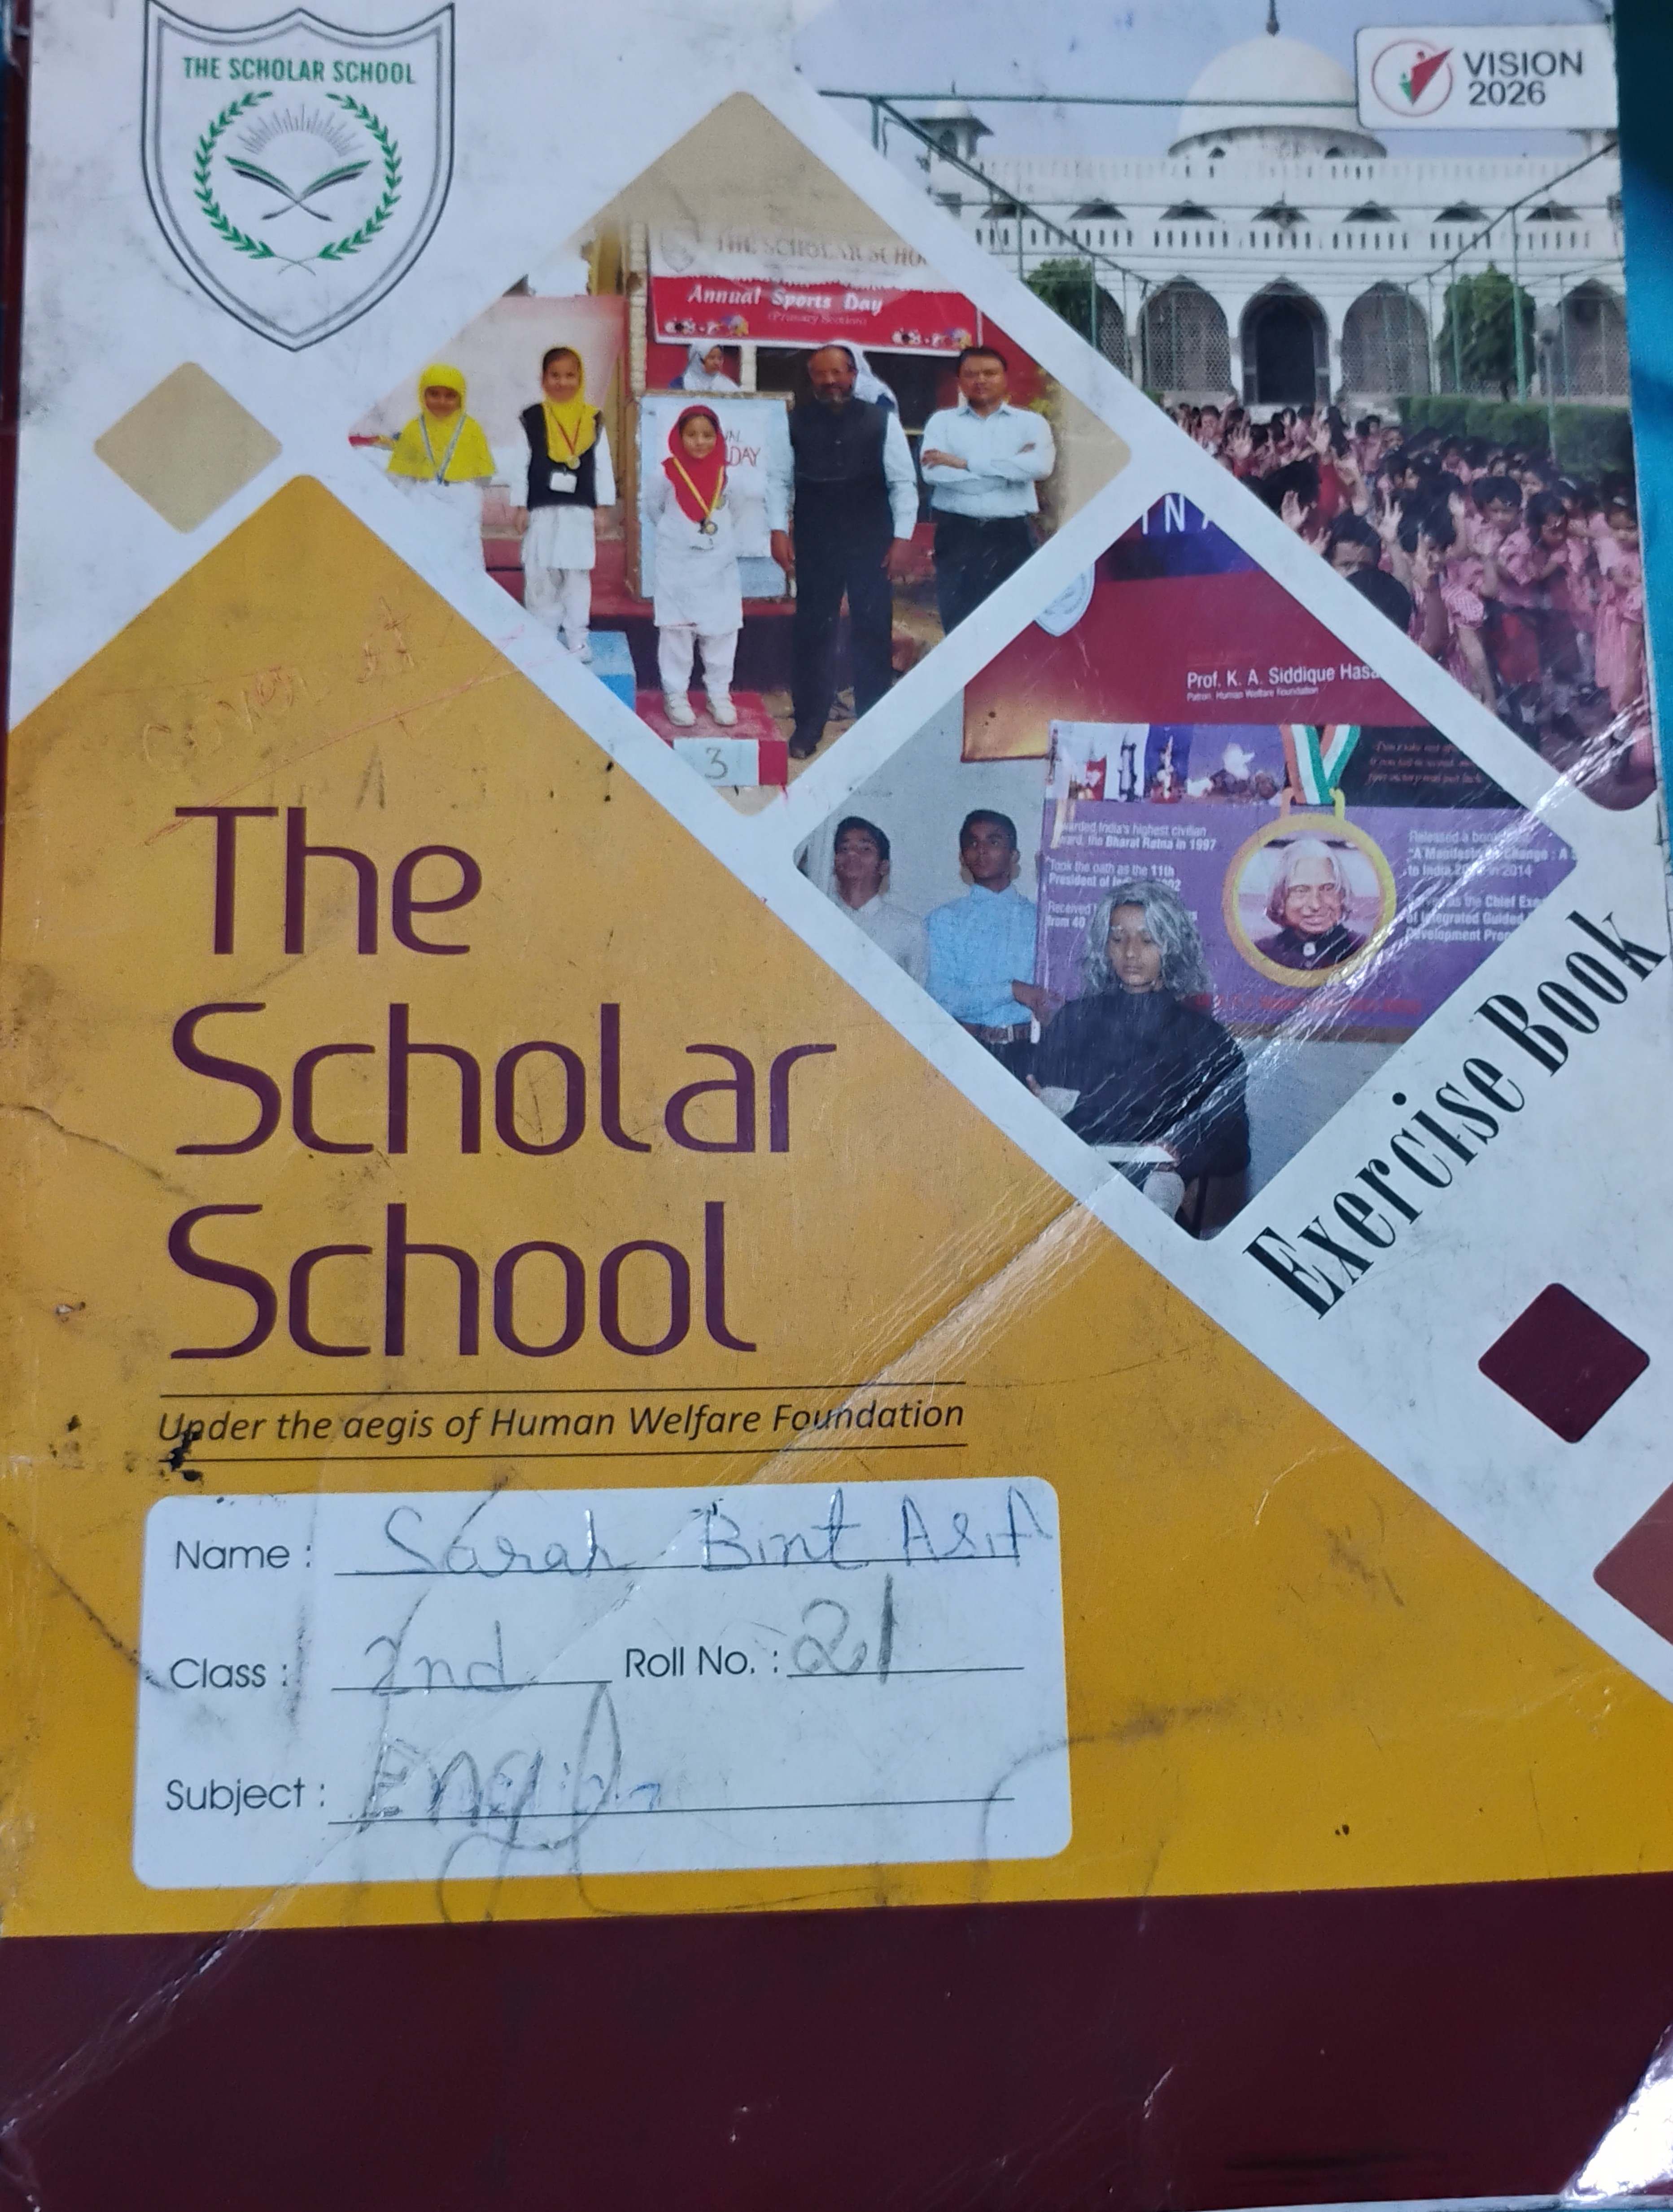 THE SCHOLAR SCHOOL
VISION
2026
THE SCHOLAR SCHO
Annual Sports Day
(Primary Section)
DAY
3
Prof. K. A. Siddique Hasa
Patron, Human Welfare Foundation
warded India's highest civilian
ward, the Bharat Ratna in 1997
Took the oath as the 11th
President of
Received
from 40
Released a book
"A Manifesto Change : A
to India 2014
as the Chief Exe
of Integrated Guided
Development Prog
Exercise Book
Cover it
The
Scholar
School
Under the aegis of Human Welfare Foundation
Name : Sarah Bint Asif
Class : 2nd Roll No. : 21
Subject : English